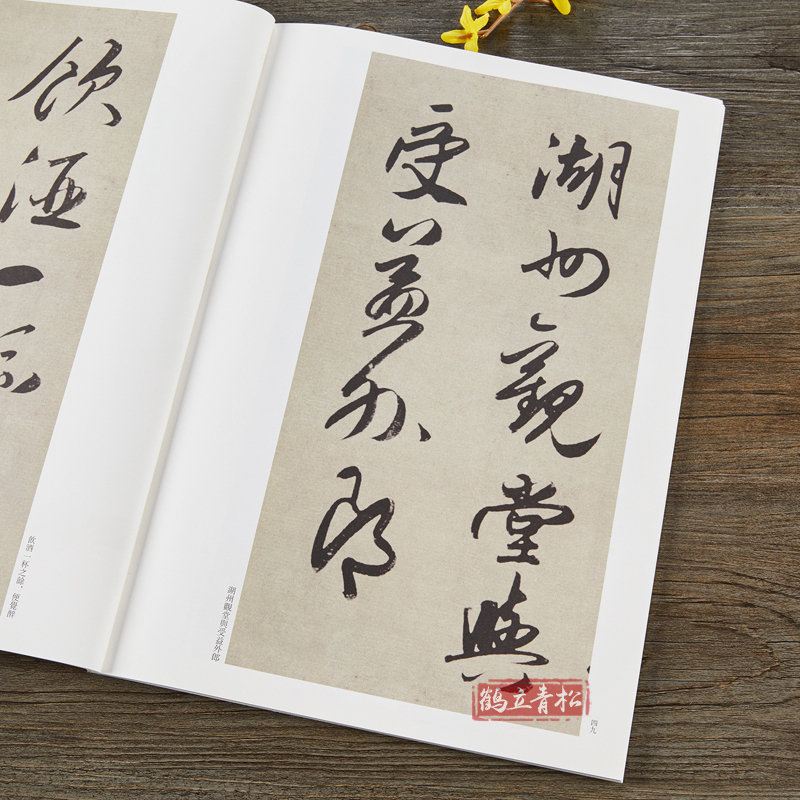 湖州觀堂與
受益外郎
湖州觀堂與受益外郎
四九
飲酒一
飲酒一杯之餘，便覺醉
鹤立青松